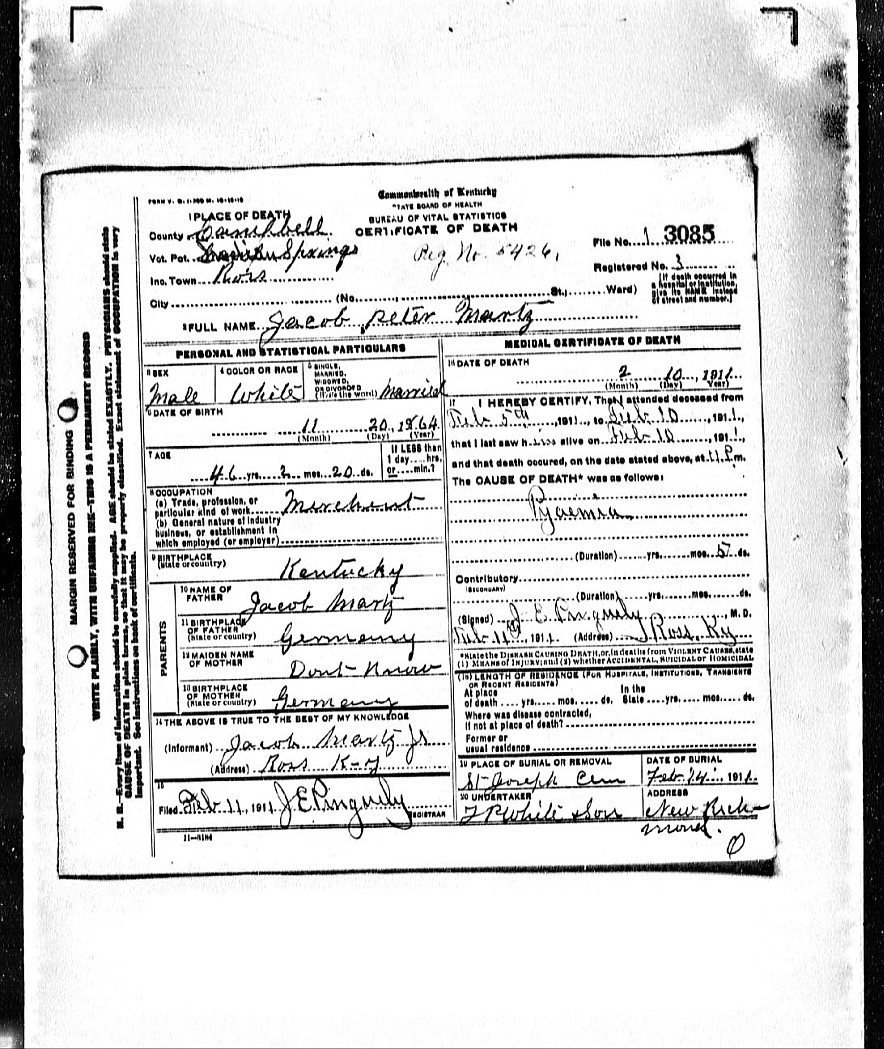 FORM V. S. 1-200 M. 10-10-10
Commonwealth of Kentucky
STATE BOARD OF HEALTH
BUREAU OF VITAL STATISTICS
CERTIFICATE OF DEATH
Reg No. 5426.
File No. 1 3085
Registered No. 3
[If death occurred in a hospital or institution, give its NAME instead of street and number.]
1 PLACE OF DEATH
County Campbell
Vot. Pct. Springs
Inc. Town Ross
City (No. , St.; Ward)
2 FULL NAME Jacob Peter Martz
PERSONAL AND STATISTICAL PARTICULARS
3 SEX
Male
4 COLOR OR RACE
White
5 SINGLE, MARRIED, WIDOWED, OR DIVORCED (Write the word) Married
6 DATE OF BIRTH
11 20, 1864
(Month) (Day) (Year)
7 AGE
46 yrs. 2 mos. 20 ds.
If LESS than 1 day....hrs. or....min.?
8 OCCUPATION
(a) Trade, profession, or particular kind of work Merchent
(b) General nature of industry business, or establishment in which employed (or employer)
9 BIRTHPLACE
(State or country) Kentucky
PARENTS
10 NAME OF FATHER Jacob Martz
11 BIRTHPLACE OF FATHER (State or country) Germany
12 MAIDEN NAME OF MOTHER Dont Know
13 BIRTHPLACE OF MOTHER (State or country) Germany
14 THE ABOVE IS TRUE TO THE BEST OF MY KNOWLEDGE
(Informant) Jacob Martz Jr
(Address) Ross K-y
15
Filed Feb 11, 1911 J. E. Pinguely
REGISTRAR
11-5184
MEDICAL CERTIFICATE OF DEATH
16 DATE OF DEATH
2 10, 1911
(Month) (Day) (Year)
17 I HEREBY CERTIFY, That I attended deceased from
Feb 5th, 1911, to Feb 10, 1911,
that I last saw him alive on Feb 10, 1911,
and that death occured, on the date stated above, at 11 P. m.
The CAUSE OF DEATH* was as follows:
Pyaemia
(Duration) yrs. mos. 5 ds.
Contributory
(SECONDARY)
(Duration) yrs. mos. ds.
(Signed) J. E. Pinguely, M. D.
Feb 11, 1911 (Address) Ross, Ky
*State the DISEASE CAUSING DEATH, or, in deaths from VIOLENT CAUSES, state (1) MEANS OF INJURY; and (2) whether ACCIDENTAL, SUICIDAL OR HOMICIDAL
(18) LENGTH OF RESIDENCE (FOR HOSPITALS, INSTITUTIONS, TRANSIENTS OR RECENT RESIDENTS)
At place of death....yrs....mos....ds. In the State....yrs....mos....ds.
Where was disease contracted, if not at place of death?
Former or usual residence
19 PLACE OF BURIAL OR REMOVAL
St Joseph Cem
DATE OF BURIAL
Feb. 14. 1911.
20 UNDERTAKER
White + Son
ADDRESS
New Rich-
mond.
MARGIN RESERVED FOR BINDING
WRITE PLAINLY, WITH UNFADING INK—THIS IS A PERMANENT RECORD
N. B.—Every item of information should be carefully supplied. AGE should be stated EXACTLY. PHYSICIANS should state
CAUSE OF DEATH in plain terms, so that it may be properly classified. Exact statement of OCCUPATION is very
important. See instructions on back of certificate.